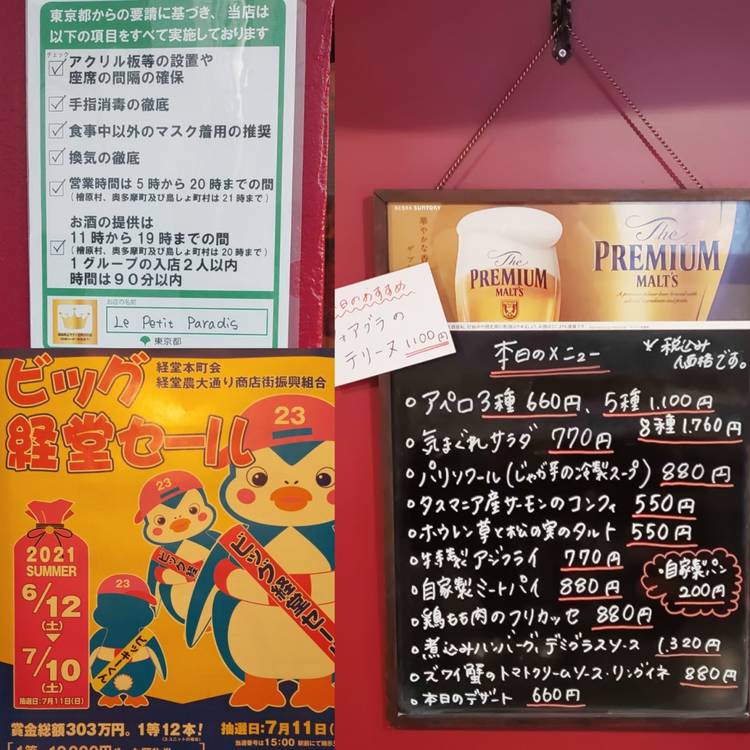 東京都からの要請に基づき、当店は
以下の項目をすべて実施しております
チェック
アクリル板等の設置や
座席の間隔の確保
手指消毒の徹底
食事中以外のマスク着用の推奨
換気の徹底
営業時間は5時から20時までの間
(檜原村、奥多摩町及び島しょ町村は21時まで)
お酒の提供は
11時から19時までの間
(檜原村、奥多摩町及び島しょ町村は20時まで)
1グループの入店2人以内
時間は90分以内
お店の名前
Le Petit Paradis
東京都
ビッグ
経堂セール
経堂本町会
経堂農大通り商店街振興組合
23
23
23
ビッグ経堂セール
ビッグ経
ビッキーくん
2021
SUMMER
6/12
(土)
7/10
(土)
抽選日:7月11日(日)
賞金総額303万円。1等12本!
抽選日:7月11日(
当選番号は15:00
SUNTORY
華やかな香
The
PREMIUM
MALT'S
The
PREMIUM
MALT'S
日のおすすめ
アグラの
テリーヌ 1100円
本日のメニュー
※税込み
価格です。
アペロ3種 660円、5種1,100円
8種1,760円
気まぐれサラダ 770円
パリソワール(じゃが芋の冷製スープ) 880円
タスマニア産サーモンのコンフィ 550円
ホウレン草と松の実のタルト 550円
自家製アジフライ 770円
自家製ミートパイ 880円
・自家製パン
200円
鶏もも肉のフリカッセ 880円
煮込みハンバーグ、デミグラスソース 1,320円
ズワイ蟹のトマトクリームソース・リングイネ 880円
本日のデザート 660円